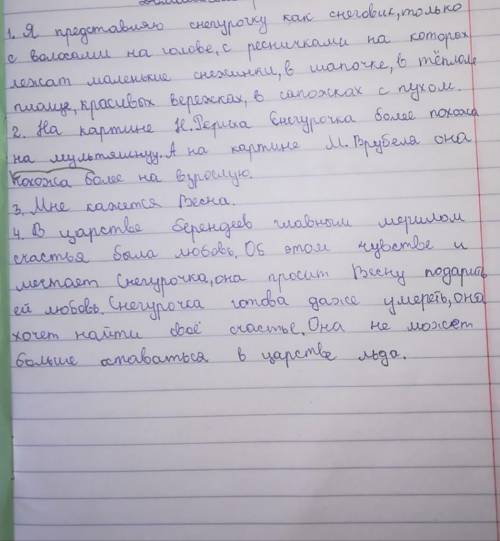 1. Я представляю снегурочку как снеговик, только
с волосами на голове, с ресничками на которых
лежат маленькие снежинки, в шапочке, в тёплом
плаще, красивых вережках, в сапожках с пухом.
2. На картине Н. Рериха Снегурочка более похожа
на мультяшную. А на картине М. Врубеля она
похожа более на взрослую.
3. Мне кажется Весна.
4. В царстве берендеев главным мерилом
счастья была любовь. Об этом чувстве и
мечтает Снегурочка, она просит Весну подарить
ей любовь. Снегурочка готова даже умереть, она
хочет найти своё счастье. Она не может
больше оставаться в царстве льда.